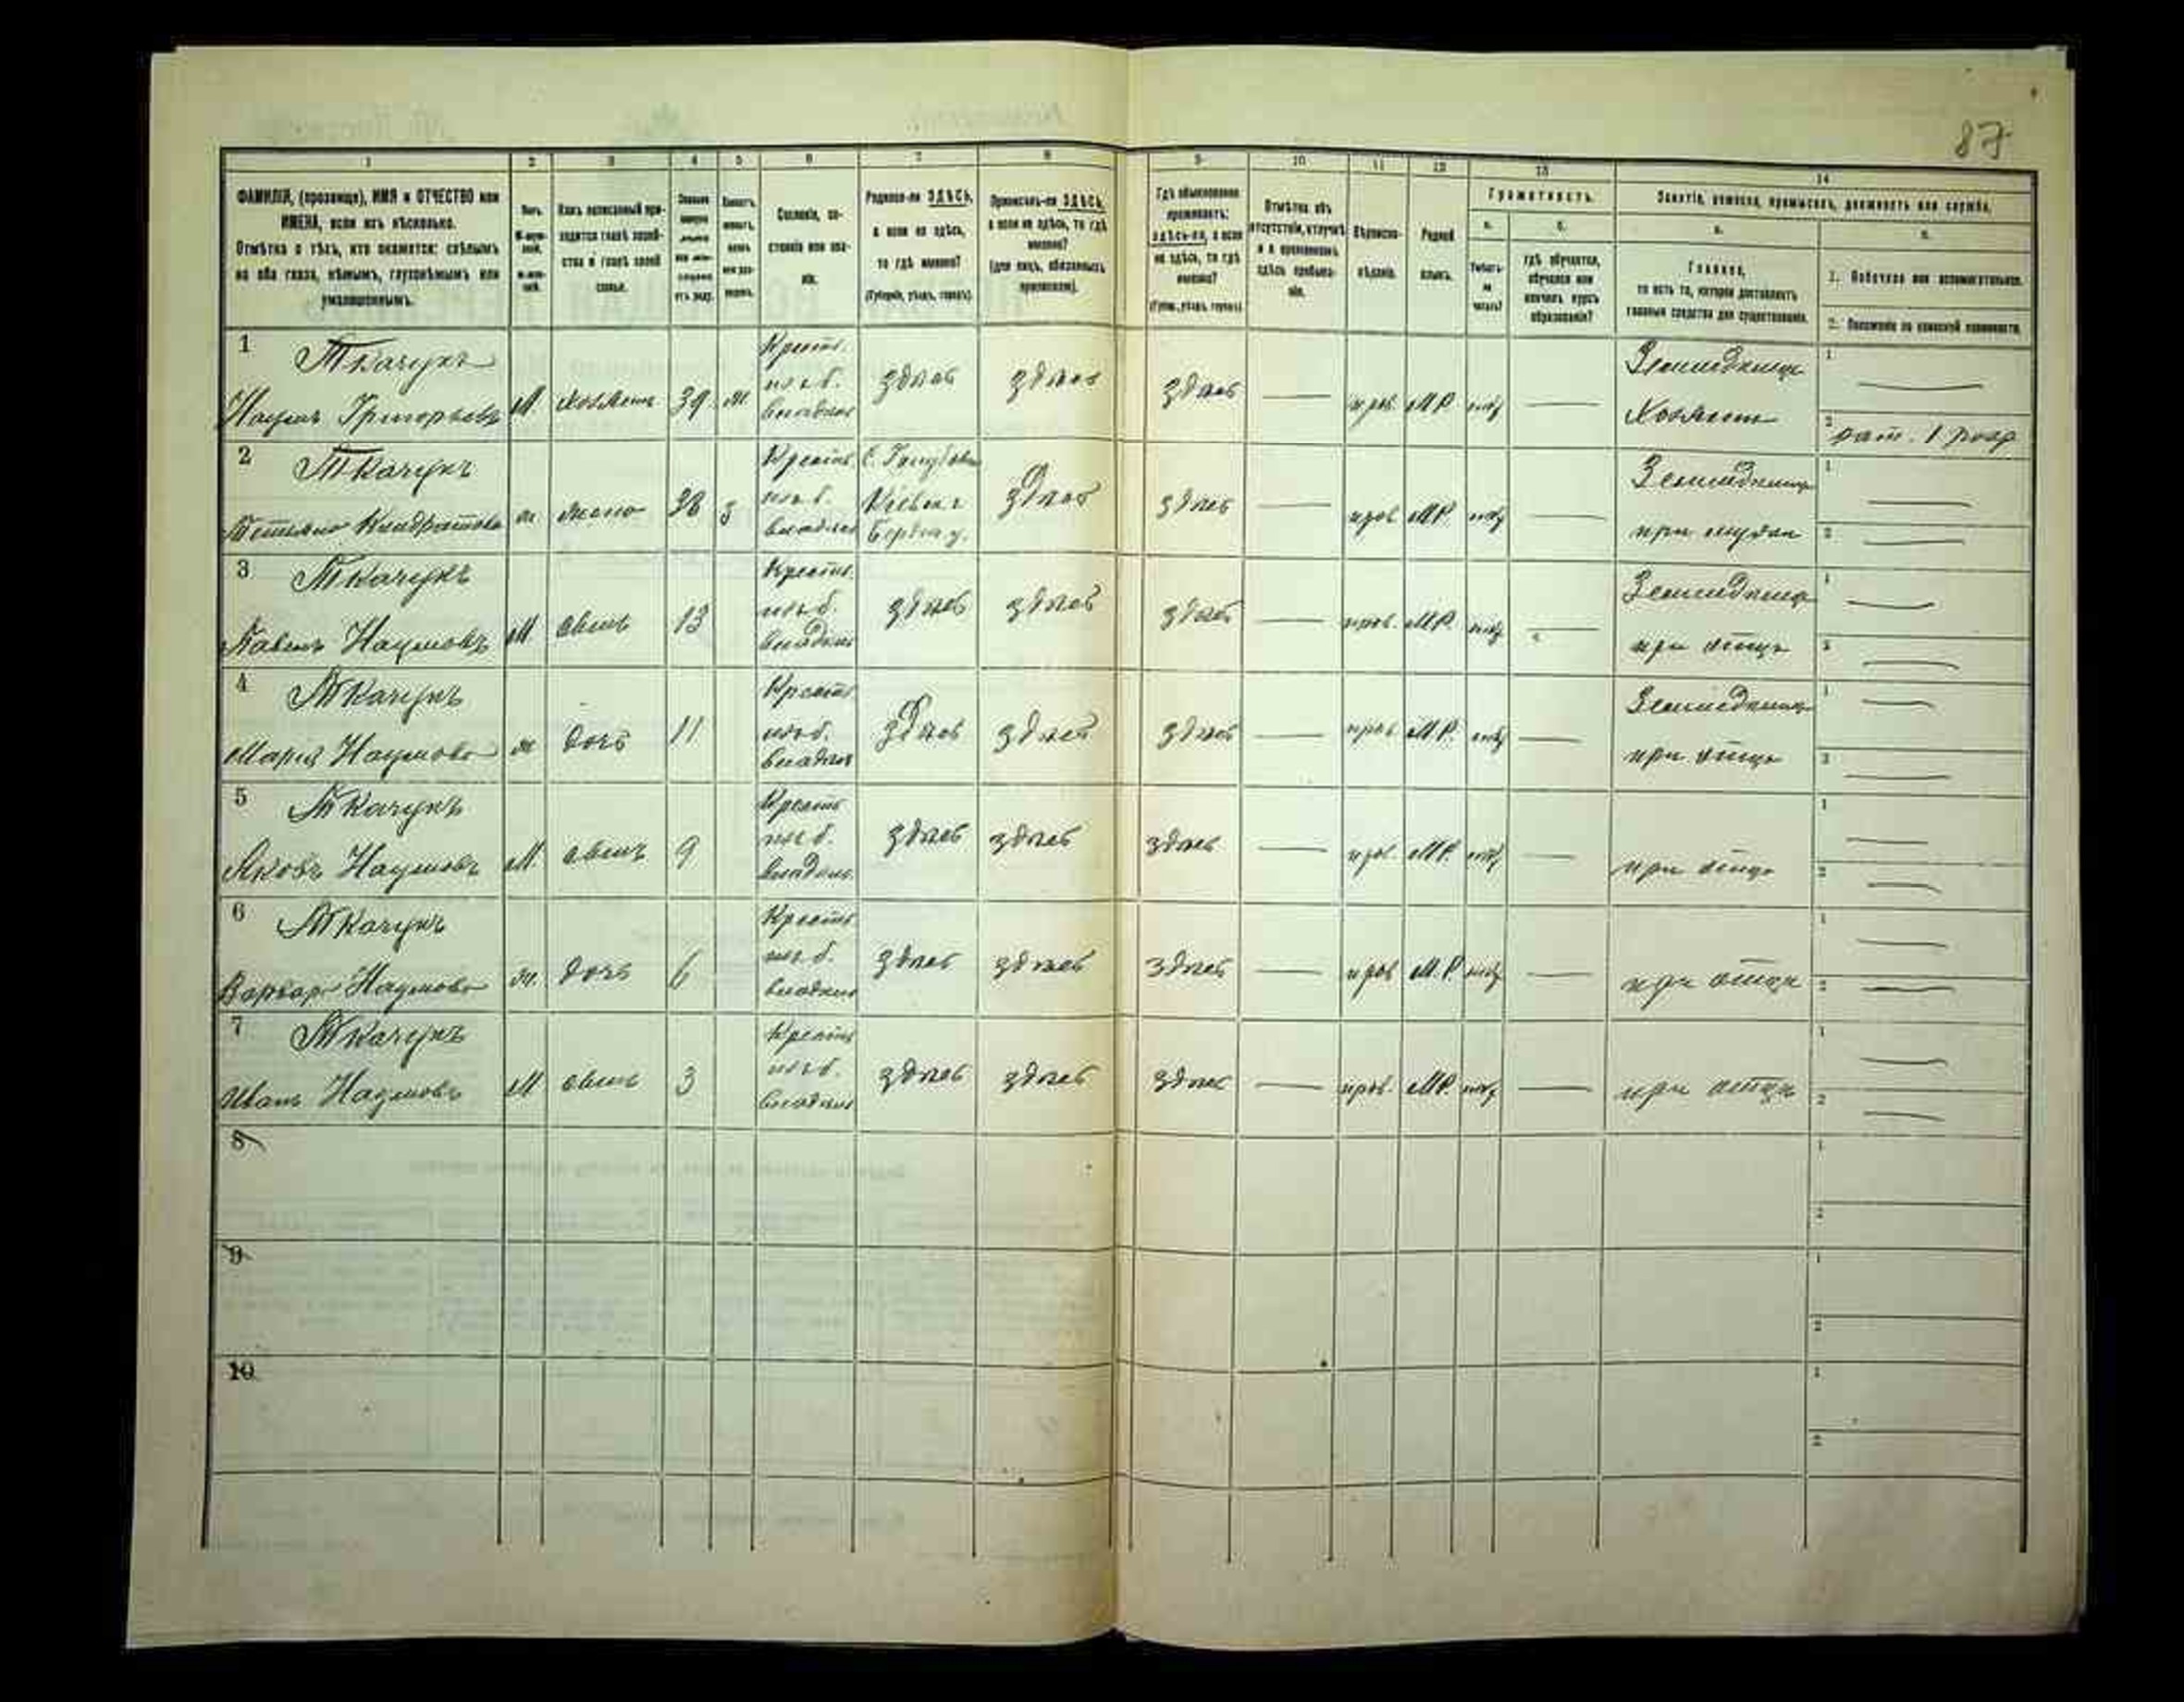 87
1 2 3 4 5 6 7 8 9 10 11 12 13 14
ФАМИЛІЯ, (прозвище), ИМЯ и ОТЧЕСТВО или
ИМЕНА, если ихъ нѣсколько.
Отмѣтка о тѣхъ, кто окажется: слѣпымъ
на оба глаза, нѣмымъ, глухонѣмымъ или
умалишеннымъ.
Полъ.
Какъ записанный при-
ходится главѣ хозяй-
ства и главѣ своей
семьи.
Сословіе, со-
стояніе или зва-
ніе.
Родился-ли ЗДѢСЬ,
а если не здѣсь,
то гдѣ именно?
(Губернія, уѣздъ, городъ).
Приписанъ-ли ЗДѢСЬ,
а если не здѣсь, то гдѣ
именно?
(для лицъ, обязанныхъ
припискою).
Гдѣ обыкновенно
проживаетъ:
здѣсь-ли, а если
не здѣсь, то гдѣ
именно?
(Губер., уѣздъ, городъ).
Отмѣтка объ
отсутствіи, отлучкѣ
и о временномъ
здѣсь пребыва-
ніи.
Вѣроиспо-
вѣданіе.
Родной
языкъ.
Грамотность.
а. б.
Умѣетъ-
ли
читать?
гдѣ обучается,
обучался или
кончилъ курсъ
образованія?
Занятіе, ремесло, промыселъ, должность или служба.
а. б.
Главное,
то есть то, которое доставляетъ
главныя средства для существованія.
1. Побочное или вспомогательное.
2. Положеніе по воинской повинности.
1 Ткачукъ
Наумъ Григорьевъ М хозяинъ 39 ж Крестьян. изъ б. владѣл здѣсь здѣсь здѣсь — прав. М.Р. нѣтъ — Земледѣлецъ Хозяинъ 1 — 2 рат. 1 разр
2 Ткачукъ
Тетьяна Кондратова ж жена 38 з Крестьян. изъ б. владѣл Кіевск г Бердич у. здѣсь здѣсь — прав М.Р. нѣтъ — Земледѣлица при мужѣ 1 — 2 —
3 Ткачукъ
Павелъ Наумовъ М сынъ 13 Крестьян. изъ б. владѣл здѣсь здѣсь здѣсь — прав. М.Р. нѣтъ — Земледѣлецъ при отцѣ 1 — 2 —
4 Ткачукъ
Марія Наумова ж дочь 11 Крестьян изъ б. владѣл здѣсь здѣсь здѣсь — прав М.Р. нѣтъ — Земледѣлица при отцѣ 1 — 2 —
5 Ткачукъ
Яковъ Наумовъ М. сынъ 9 Крестьян изъ б. владѣл. здѣсь здѣсь здѣсь — прав. М.Р. нѣтъ — при отцѣ 1 — 2 —
6 Ткачукъ
Варвара Наумова ж. дочь 6 Крестьян изъ б. владѣл здѣсь здѣсь здѣсь — прав М.Р. нѣтъ — при отцѣ 1 — 2 —
7 Ткачукъ
Иванъ Наумовъ М сынъ 3 Крестьян изъ б. владѣл здѣсь здѣсь здѣсь — прав. М.Р. нѣтъ — при отцѣ 1 — 2 —
8 1 2
9 1 2
10 1 2